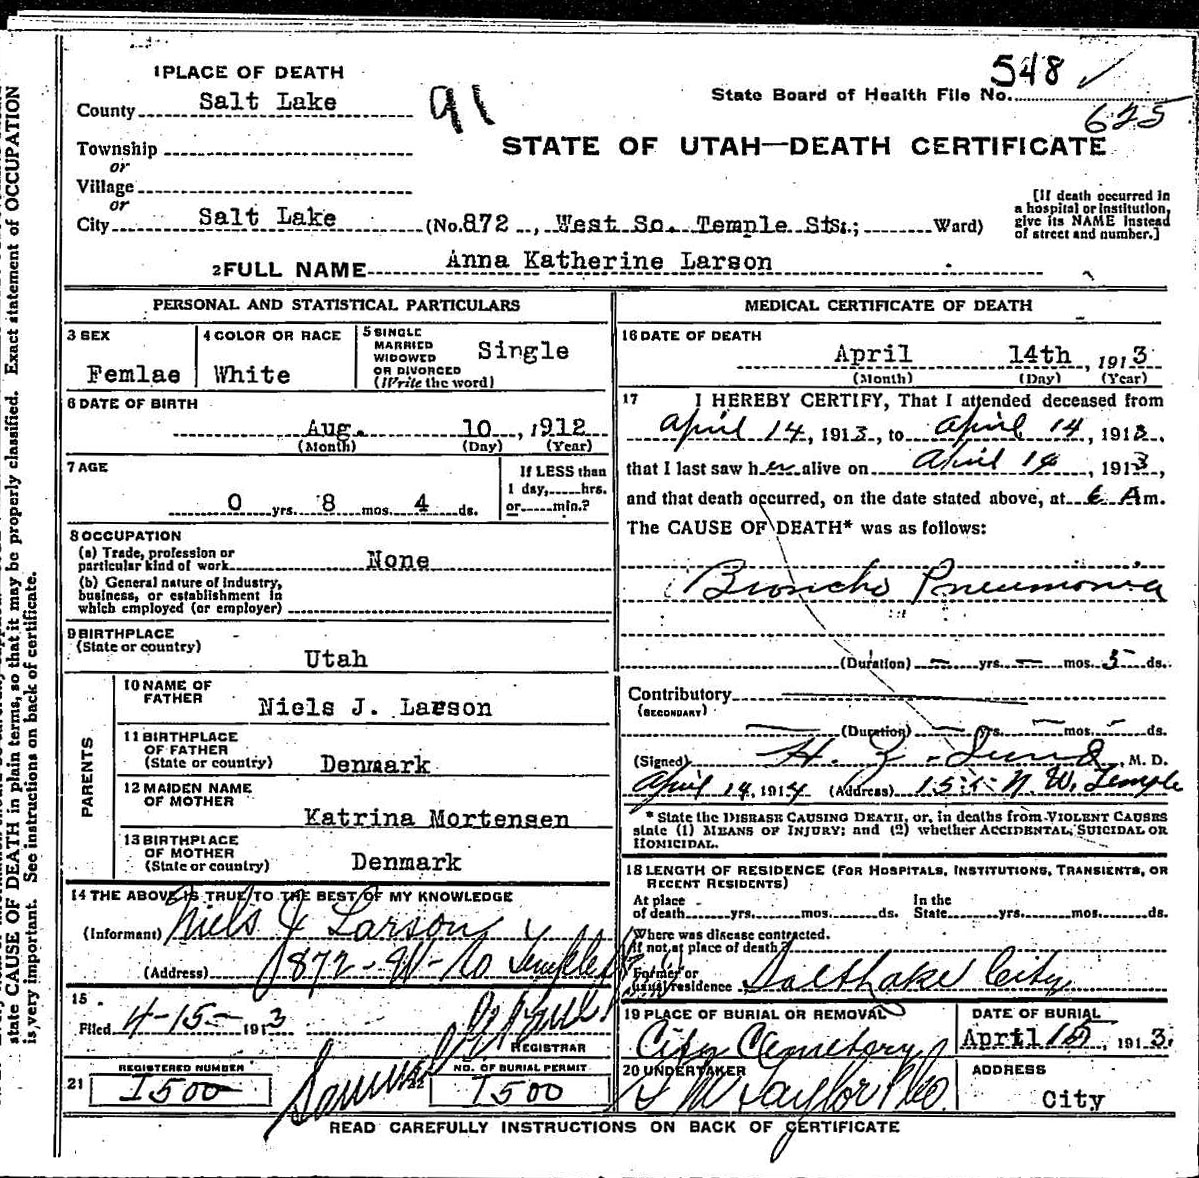 1 PLACE OF DEATH
County Salt Lake
91
State Board of Health File No. 548
625
Township
or
Village
or
City Salt Lake (No. 872, West So. Temple Sts.; Ward)
STATE OF UTAH—DEATH CERTIFICATE
[If death occurred in
a hospital or institution,
give its NAME instead
of street and number.]
2 FULL NAME Anna Katherine Larson
PERSONAL AND STATISTICAL PARTICULARS
3 SEX
Femlae
4 COLOR OR RACE
White
5 SINGLE
MARRIED
WIDOWED
OR DIVORCED
(Write the word)
Single
6 DATE OF BIRTH
Aug. 10, 1912
(Month) (Day) (Year)
7 AGE
0 yrs. 8 mos. 4 ds.
If LESS than
1 day, hrs.
or min.?
8 OCCUPATION
(a) Trade, profession or
particular kind of work None
(b) General nature of industry,
business, or establishment in
which employed (or employer)
9 BIRTHPLACE
(State or country)
Utah
PARENTS
10 NAME OF
FATHER
Niels J. Larson
11 BIRTHPLACE
OF FATHER
(State or country) Denmark
12 MAIDEN NAME
OF MOTHER
Katrina Mortensen
13 BIRTHPLACE
OF MOTHER
(State or country) Denmark
14 THE ABOVE IS TRUE TO THE BEST OF MY KNOWLEDGE
(Informant) Niels J Larson
(Address) 872 - W - So Temple
15
Filed 4-15- 1913
REGISTRAR
21
REGISTERED NUMBER
1500
22
NO. OF BURIAL PERMIT
1500
MEDICAL CERTIFICATE OF DEATH
16 DATE OF DEATH
April 14th, 1913
(Month) (Day) (Year)
17 I HEREBY CERTIFY, That I attended deceased from
April 14, 1913, to April 14, 1913,
that I last saw her alive on April 14, 1913,
and that death occurred, on the date stated above, at 6 A m.
The CAUSE OF DEATH* was as follows:
Broncho Pneumonia
(Duration) — yrs. — mos. 5 ds.
Contributory
(SECONDARY)
(Duration) yrs. mos. ds.
(Signed) H. Z. Lund, M. D.
April 14, 1914 (Address) N. W. Temple
* State the DISEASE CAUSING DEATH, or, in deaths from VIOLENT CAUSES
state (1) MEANS OF INJURY; and (2) whether ACCIDENTAL, SUICIDAL OR
HOMICIDAL.
18 LENGTH OF RESIDENCE (FOR HOSPITALS, INSTITUTIONS, TRANSIENTS, OR
RECENT RESIDENTS)
At place
of death yrs. mos. ds.
In the
State yrs. mos. ds.
Where was disease contracted.
if not at place of death?
Former or
usual residence Salt Lake City
19 PLACE OF BURIAL OR REMOVAL
City Cemetery
DATE OF BURIAL
April 15, 1913.
20 UNDERTAKER
S M Taylor & Co.
ADDRESS
City
READ CAREFULLY INSTRUCTIONS ON BACK OF CERTIFICATE
state CAUSE OF DEATH in plain terms, so that it may be properly classified. Exact statement of OCCUPATION
is very important. See instructions on back of certificate.